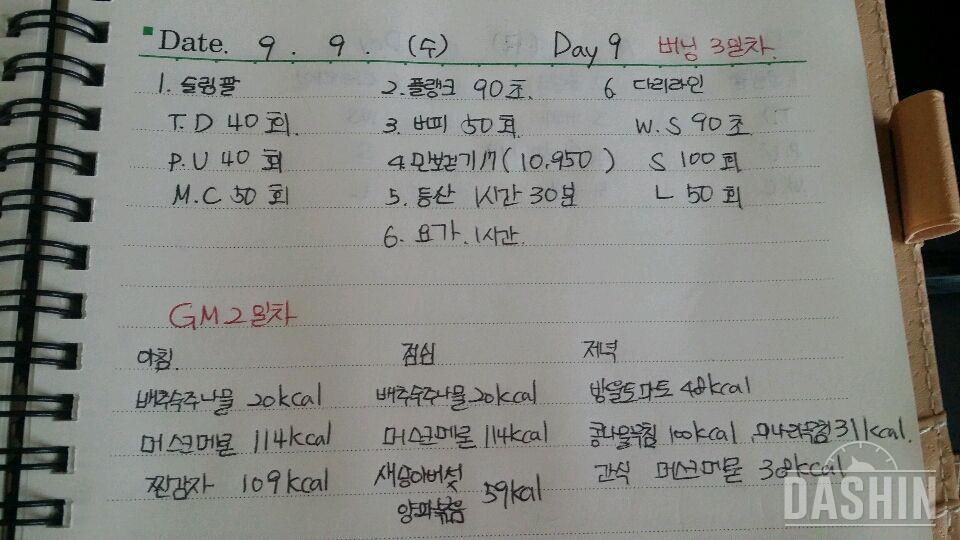 Date. 9. 9. (수) Day 9 버닝 3일차.
1. 슬림팔 2. 플랭크 90초. 6. 다리라인
T.D 40회. 3. 버피 50회 W.S 90초
P.U 40회 4. 만보걷기/7(10,950) S 100회
M.C 50회 5. 등산 1시간 30분 L 50회
6. 요가. 1시간.
GM 2일차
아침. 점심 저녁
배추숙주나물 20kcal 배추숙주나물 20kcal 방울토마토 48kcal
머스크메론 114kcal 머스크메론 114kcal 콩나물무침 100kcal 미나리무침 311kcal.
찐감자 109kcal 새송이버섯 간식 머스크메론 38kcal
양파볶음 59kal
DASHIN